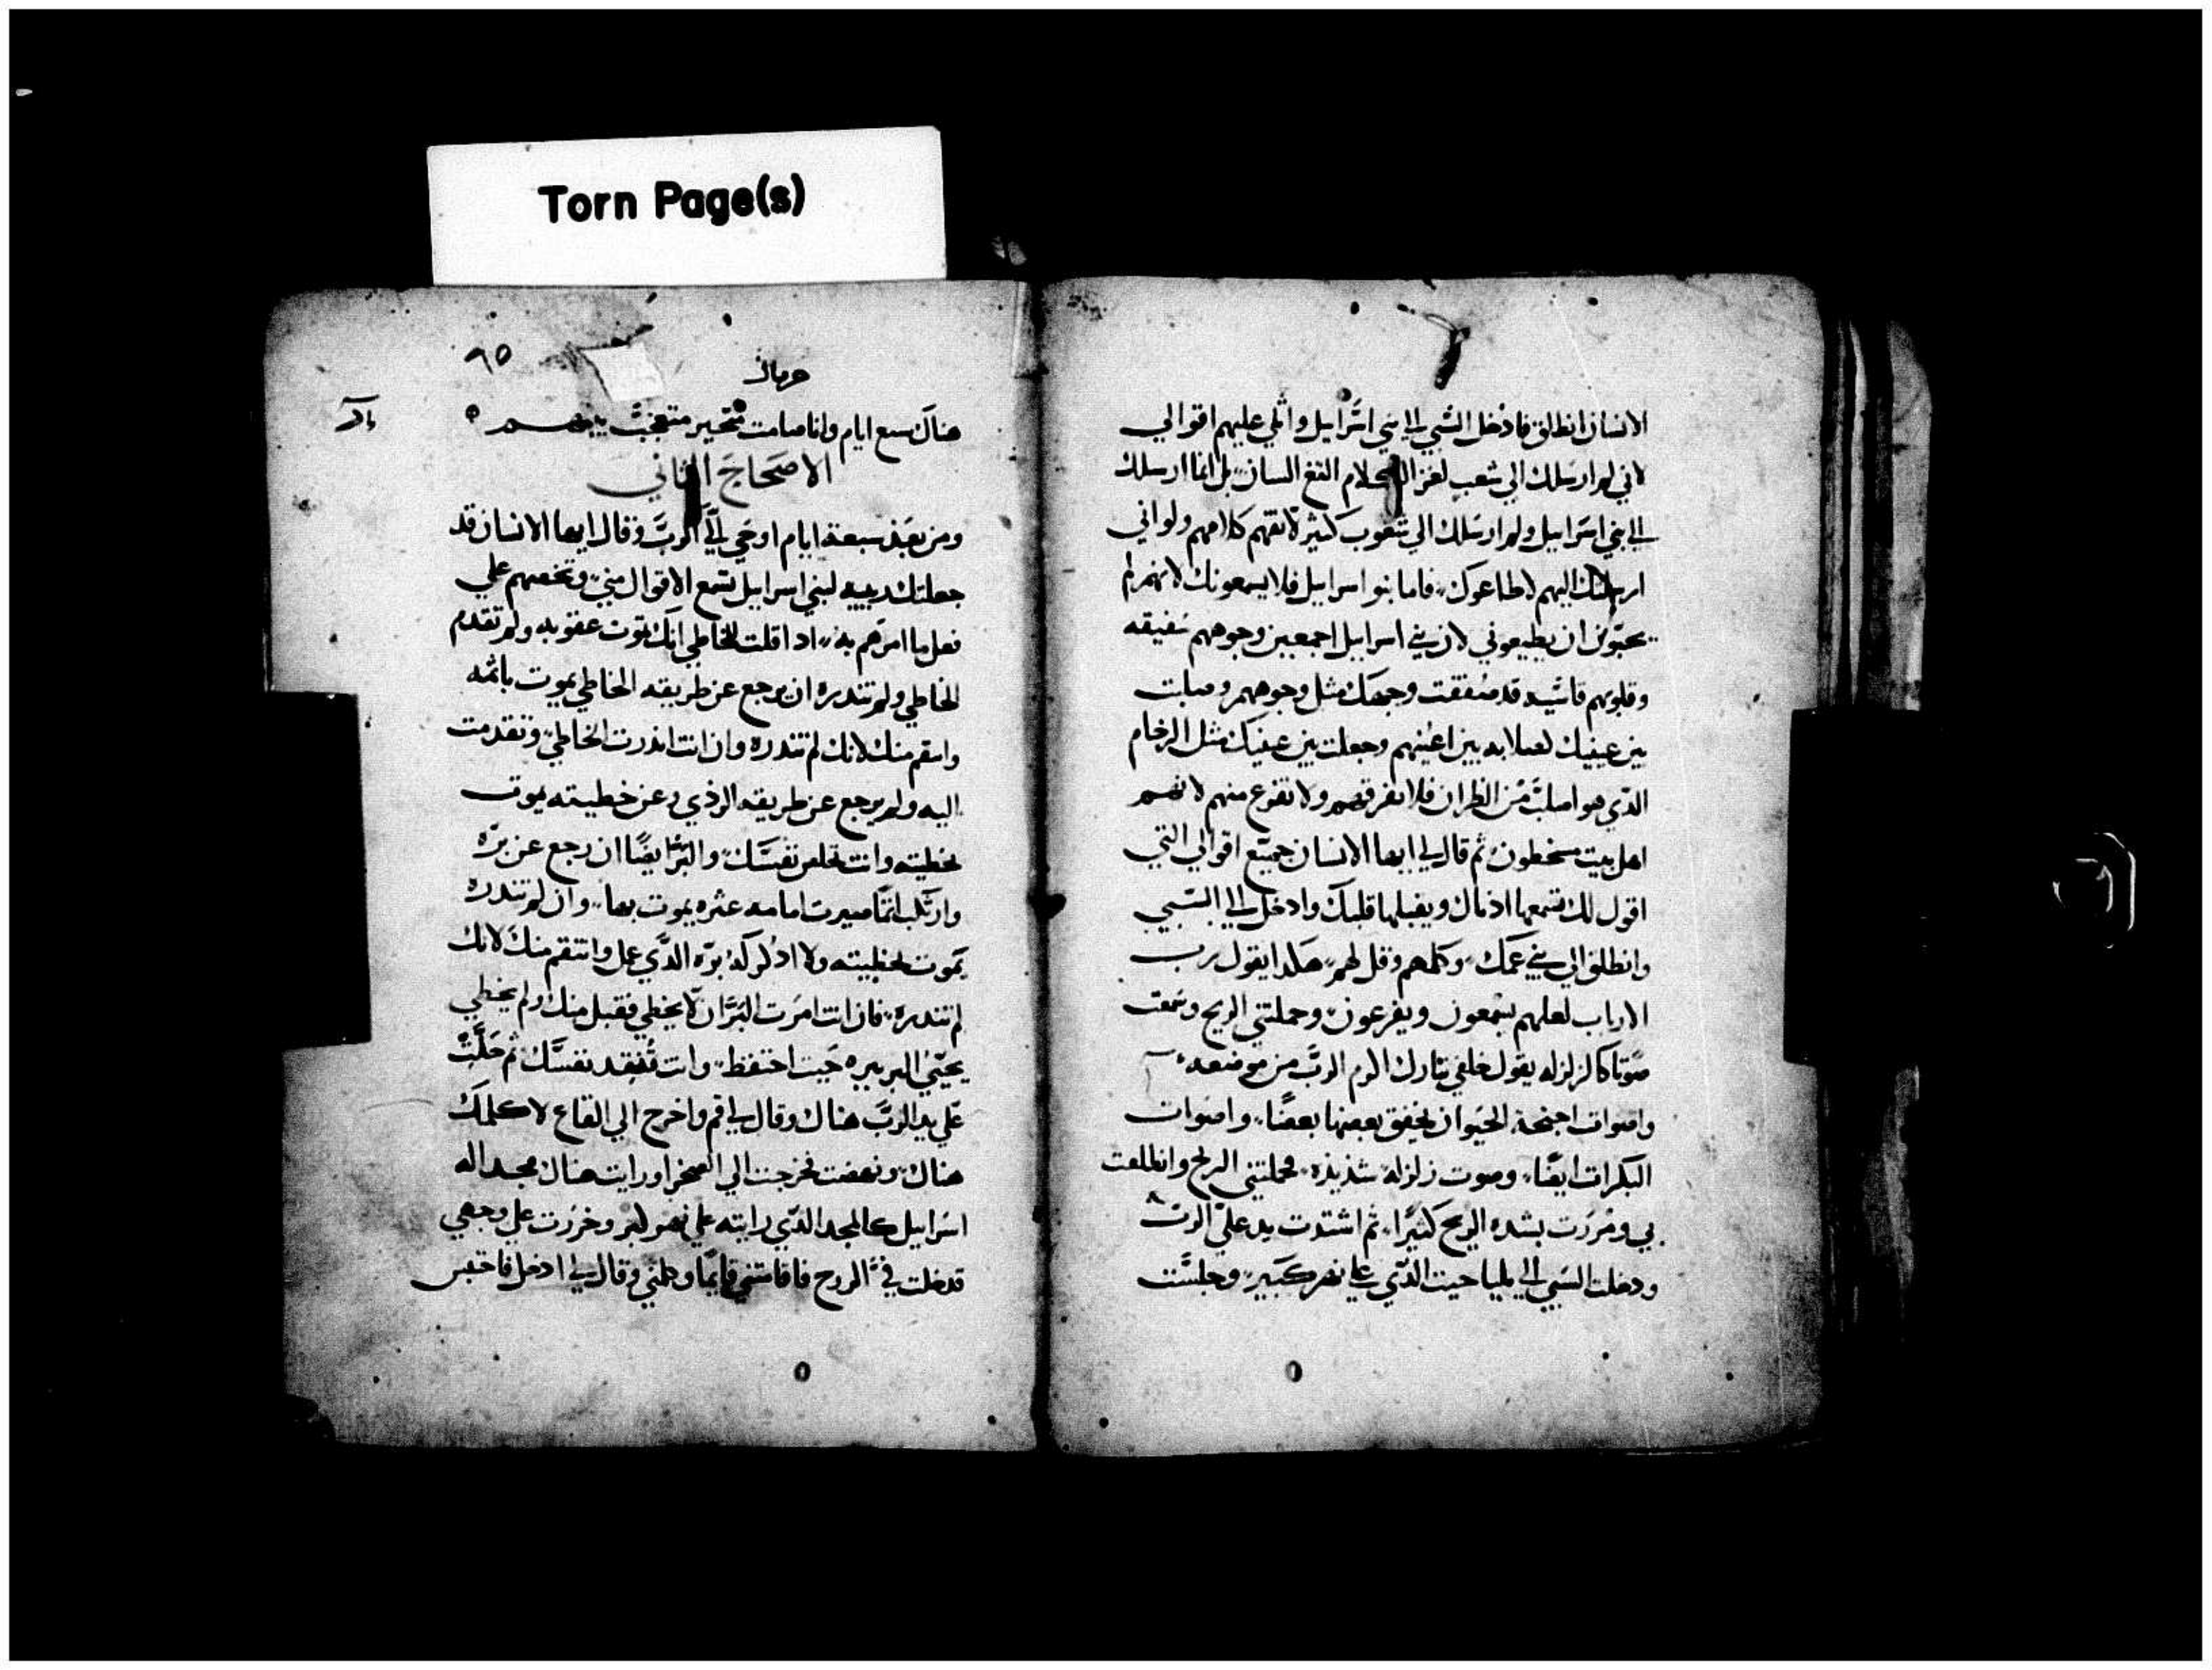 Torn Page(s)
الانسان انطلق فادخل السبي الي بني اسرايل واتلي عليهم اقوالي
لاني لم ارسلك الي شعب لغز الكلام النغ اللسان بل انما ارسلك
الي بني اسرايل ولم ارسلك الي شعوب كثيرة لا تفهم كلامهم ولو اني
ارسلتك اليهم لاطاعوك فاما بنو اسرايل فلا يسمعونك لانهم لم
يحبون ان يطيعوني لان بني اسرايل اجمعين وجوههم صفيقه
وقلوبهم قاسيه قد صفقت وجهك مثل وجوههم وصلبت
بين عينيك لصلابه بين اعينهم وجعلت بين عينيك مثل الرخام
الذي هو اصلب من الظران فلا تفرقهم ولا تفزع منهم لانهم
اهل بيت مسخطون ثم قال لي ايها الانسان جميع اقوالي التي
اقول لك تسمعها اذناك ويقبلها قلبك وادخل الي السبي
وانطلق الي بني عمك وكلمهم وقل لهم هكدا يقول رب
الارباب لعلهم يسمعون ويفزعون وحملتني الريح وسمعت
صوتا كالزلزله يقول خلفي تبارك الرب من موضعه
واصوات اجنحة الحيوان يخفق بعضها بعضا واصوات
البكرات ايضا وصوت زلزلة شديده فحملتني الريح وانطلقت
بي ومررت بشده الريح كثيرا ثم اشتدت يد علي الرب
ودخلت السبي الي حيت الذي علي نهر كبير وجلست
٦٥
حزقيال
هناك سبع ايام وانا صامت متحير متعجب بينهم
الاصحاح الثاني
ومن بعد سبعة ايام اوحي الي الرب وقال ايها الانسان قد
جعلتك ديبيه لبني اسرايل تسمع الاقوال مني وتخصهم علي
فعل ما امرهم به اذا قلت للخاطي انك تموت عقوبه ولم تقدم
الخاطي ولم تندره ان يرجع عن طريقه الخاطي يموت باثمه
وانتقم منك لانك لم تندره وان انت انذرت الخاطي وتقدمت
اليه ولم يرجع عن طريقه الردي وعن خطيته يموت
بخطيته وانت تخلص نفسك والبر ايضا ان رجع عن بره
وارتكب اثما صيرت امامه عثره يموت بها وان لم تندره
يموت بخطيته ولا ادكر له بره الذي عمل وانتقم منك لانك
لم تندره فان انت امرت البر ان لا يخطي فقبل منك ولم يخطي
يحيي البر ببره حيت احتفظ وانت تنقد نفسك ثم حلت
علي يد الرب هناك وقال لي قم واخرج الي القاع لاكلمك
هناك ونهضت فخرجت الي الصخرا ورايت هناك مجد اله
اسرايل كالمجد الذي رايته علي نهر كبر وخررت علي وجهي
فدخلت في الروح فاقامتني قايما وكلمني وقال لي ادخل فاحتبس